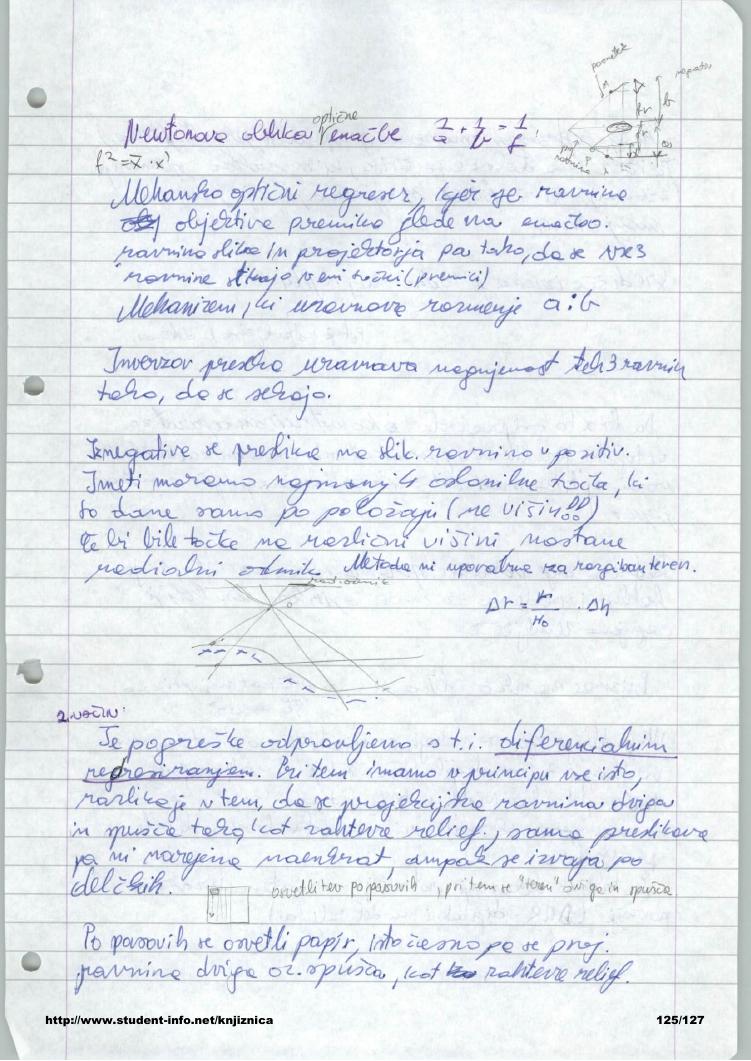 posnetek
negativ
optične
Newtonova oblika enačbe 1/a + 1/b = 1/f
f² = x · x'
Mehansko optični regreser, kjer se ravnina
objektiva premika glede na enačbo.
ravnino slike in projektorja pa tako, da se vse 3
ravnine stikajo v eni točki (premici)
Mehanizem, ki uravnava razmerje a:b
Inverzor preseka uravnava nagnjenost teh 3 ravnin
tako, da se sekajo.
Iz negative se preslika na slik. ravnino v pozitiv.
Imeti moramo najmanj 4 oslonilne točke, ki
so dane samo po položaju (ne višin
Če bi bile točke na različni višini, nastane
radialni odmik Metoda ni uporabna za razgiban teren.
Δr = r/H₀ · Δh
2. način:
Te pogreške odpravljamo s t.i. diferencialnim
regresiranjem. Pri tem imamo v principu vse isto,
razlika je v tem, da se projekcijska ravnina dviga
in spušča tako, kot zahteva relief, samo preslikava
pa ni narejena naenkrat, ampak se izvaja po
delčkih.
osvetlitev po pasovih, pri tem se "teren" dviga in spušča
Po pasovih se osvetli papir, istočasno pa se proj.
ravnina dviga oz. spušča, kot zahteva relief.
http://www.student-info.net/knjiznica
125/127